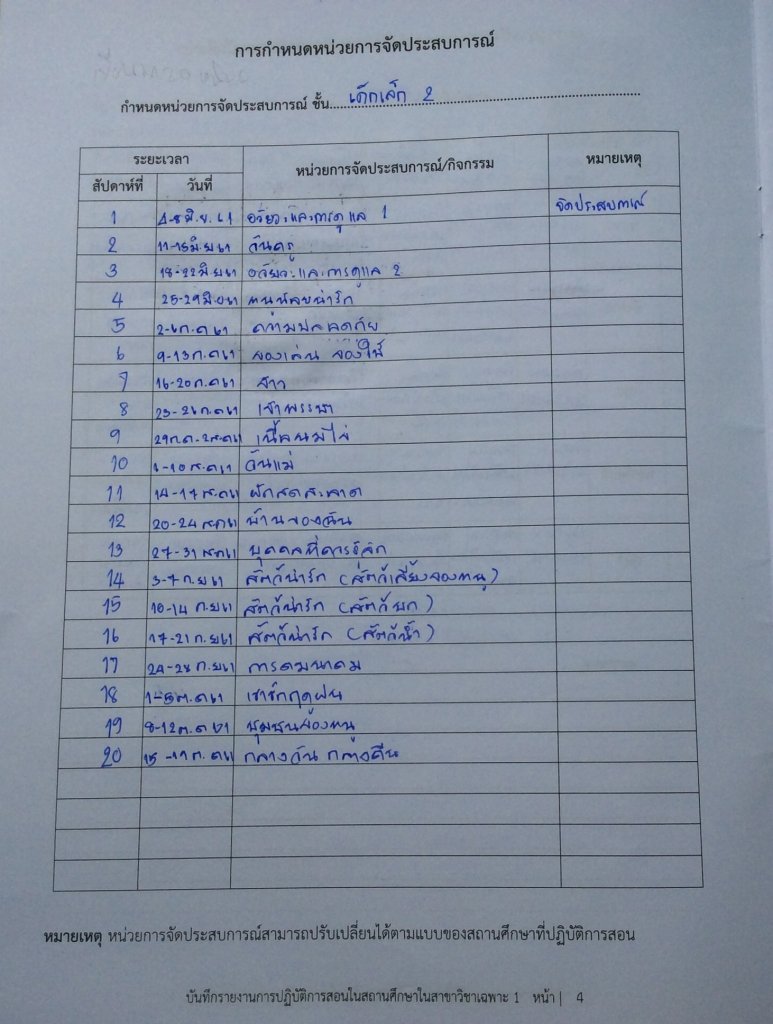 การกำหนดหน่วยการจัดประสบการณ์
กำหนดหน่วยการจัดประสบการณ์ ชั้น เด็กเล็ก 2
ระยะเวลา หน่วยการจัดประสบการณ์/กิจกรรม หมายเหตุ
สัปดาห์ที่ วันที่
1 4-8 มิ.ย. 61 อวัยวะและการดูแล 1 จัดประสบการณ์
2 11-15 มิ.ย 61 วันครู
3 18-22 มิ.ย 61 อวัยวะและการดูแล 2
4 25-29 มิ.ย 61 หนูน้อยน่ารัก
5 2-6 ก.ค 61 ความปลอดภัย
6 9-13 ก.ค 61 ของเล่น ของใช้
7 16-20 ก.ค 61 ข้าว
8 23-26 ก.ค 61 เข้าพรรษา
9 เนื้อนมไข่
10 วันแม่
11 14-17 ส.ค 61 ผักสดสะอาด
12 20-24 ส.ค 61 บ้านของฉัน
13 27-31 ส.ค 61 บุคคลที่ควรรู้จัก
14 3-7 ก.ย 61 สัตว์น่ารัก (สัตว์เลี้ยงของหนู)
15 10-14 ก.ย 61 สัตว์น่ารัก (สัตว์บก)
16 17-21 ก.ย 61 สัตว์น่ารัก (สัตว์น้ำ)
17 24-28 ก.ย 61 การคมนาคม
18 1-5 ต.ค 61 เรารักฤดูฝน
19 8-12 ต.ค 61 ชุมชนของหนู
20 กลางวัน กลางคืน
หมายเหตุ หน่วยการจัดประสบการณ์สามารถปรับเปลี่ยนได้ตามแบบของสถานศึกษาที่ปฏิบัติการสอน
บันทึกรายงานการปฏิบัติการสอนในสถานศึกษาในสาขาวิชาเฉพาะ 1 หน้า | 4